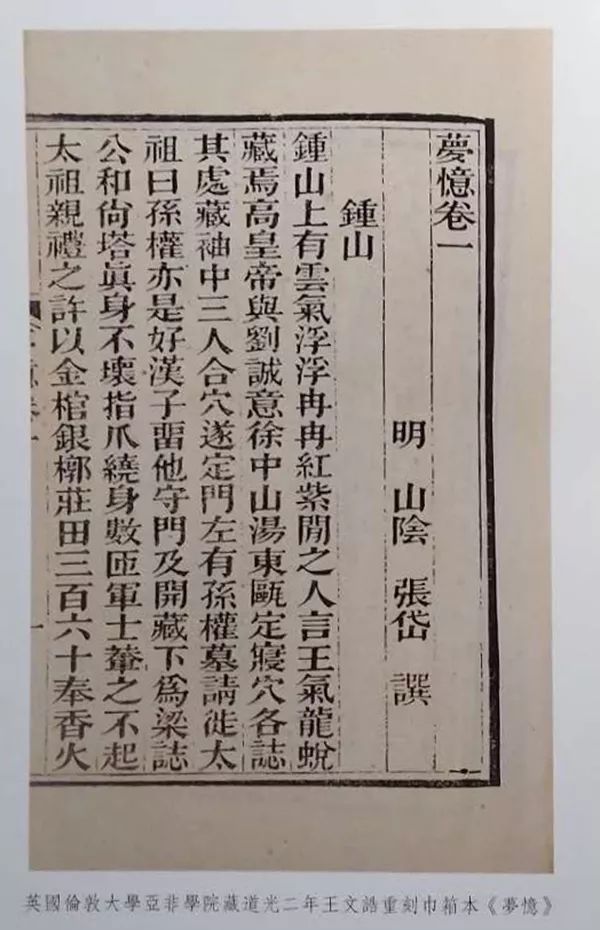 夢憶卷一
明 山陰 張岱 譔
鍾山
鍾山上有雲氣浮浮冉冉紅紫閒之人言王氣龍蛻
藏焉高皇帝與劉誠意徐中山湯東甌定寢穴各誌
其處藏袖中三人合穴遂定門左有孫權墓請徙太
祖曰孫權亦是好漢子畱他守門及開藏下爲梁誌
公和尙塔眞身不壞指爪繞身數匝軍士輂之不起
太祖親禮之許以金棺銀槨莊田三百六十奉香火
卷一
一
英國倫敦大學亞非學院藏道光二年王文誥重刻巾箱本《夢憶》